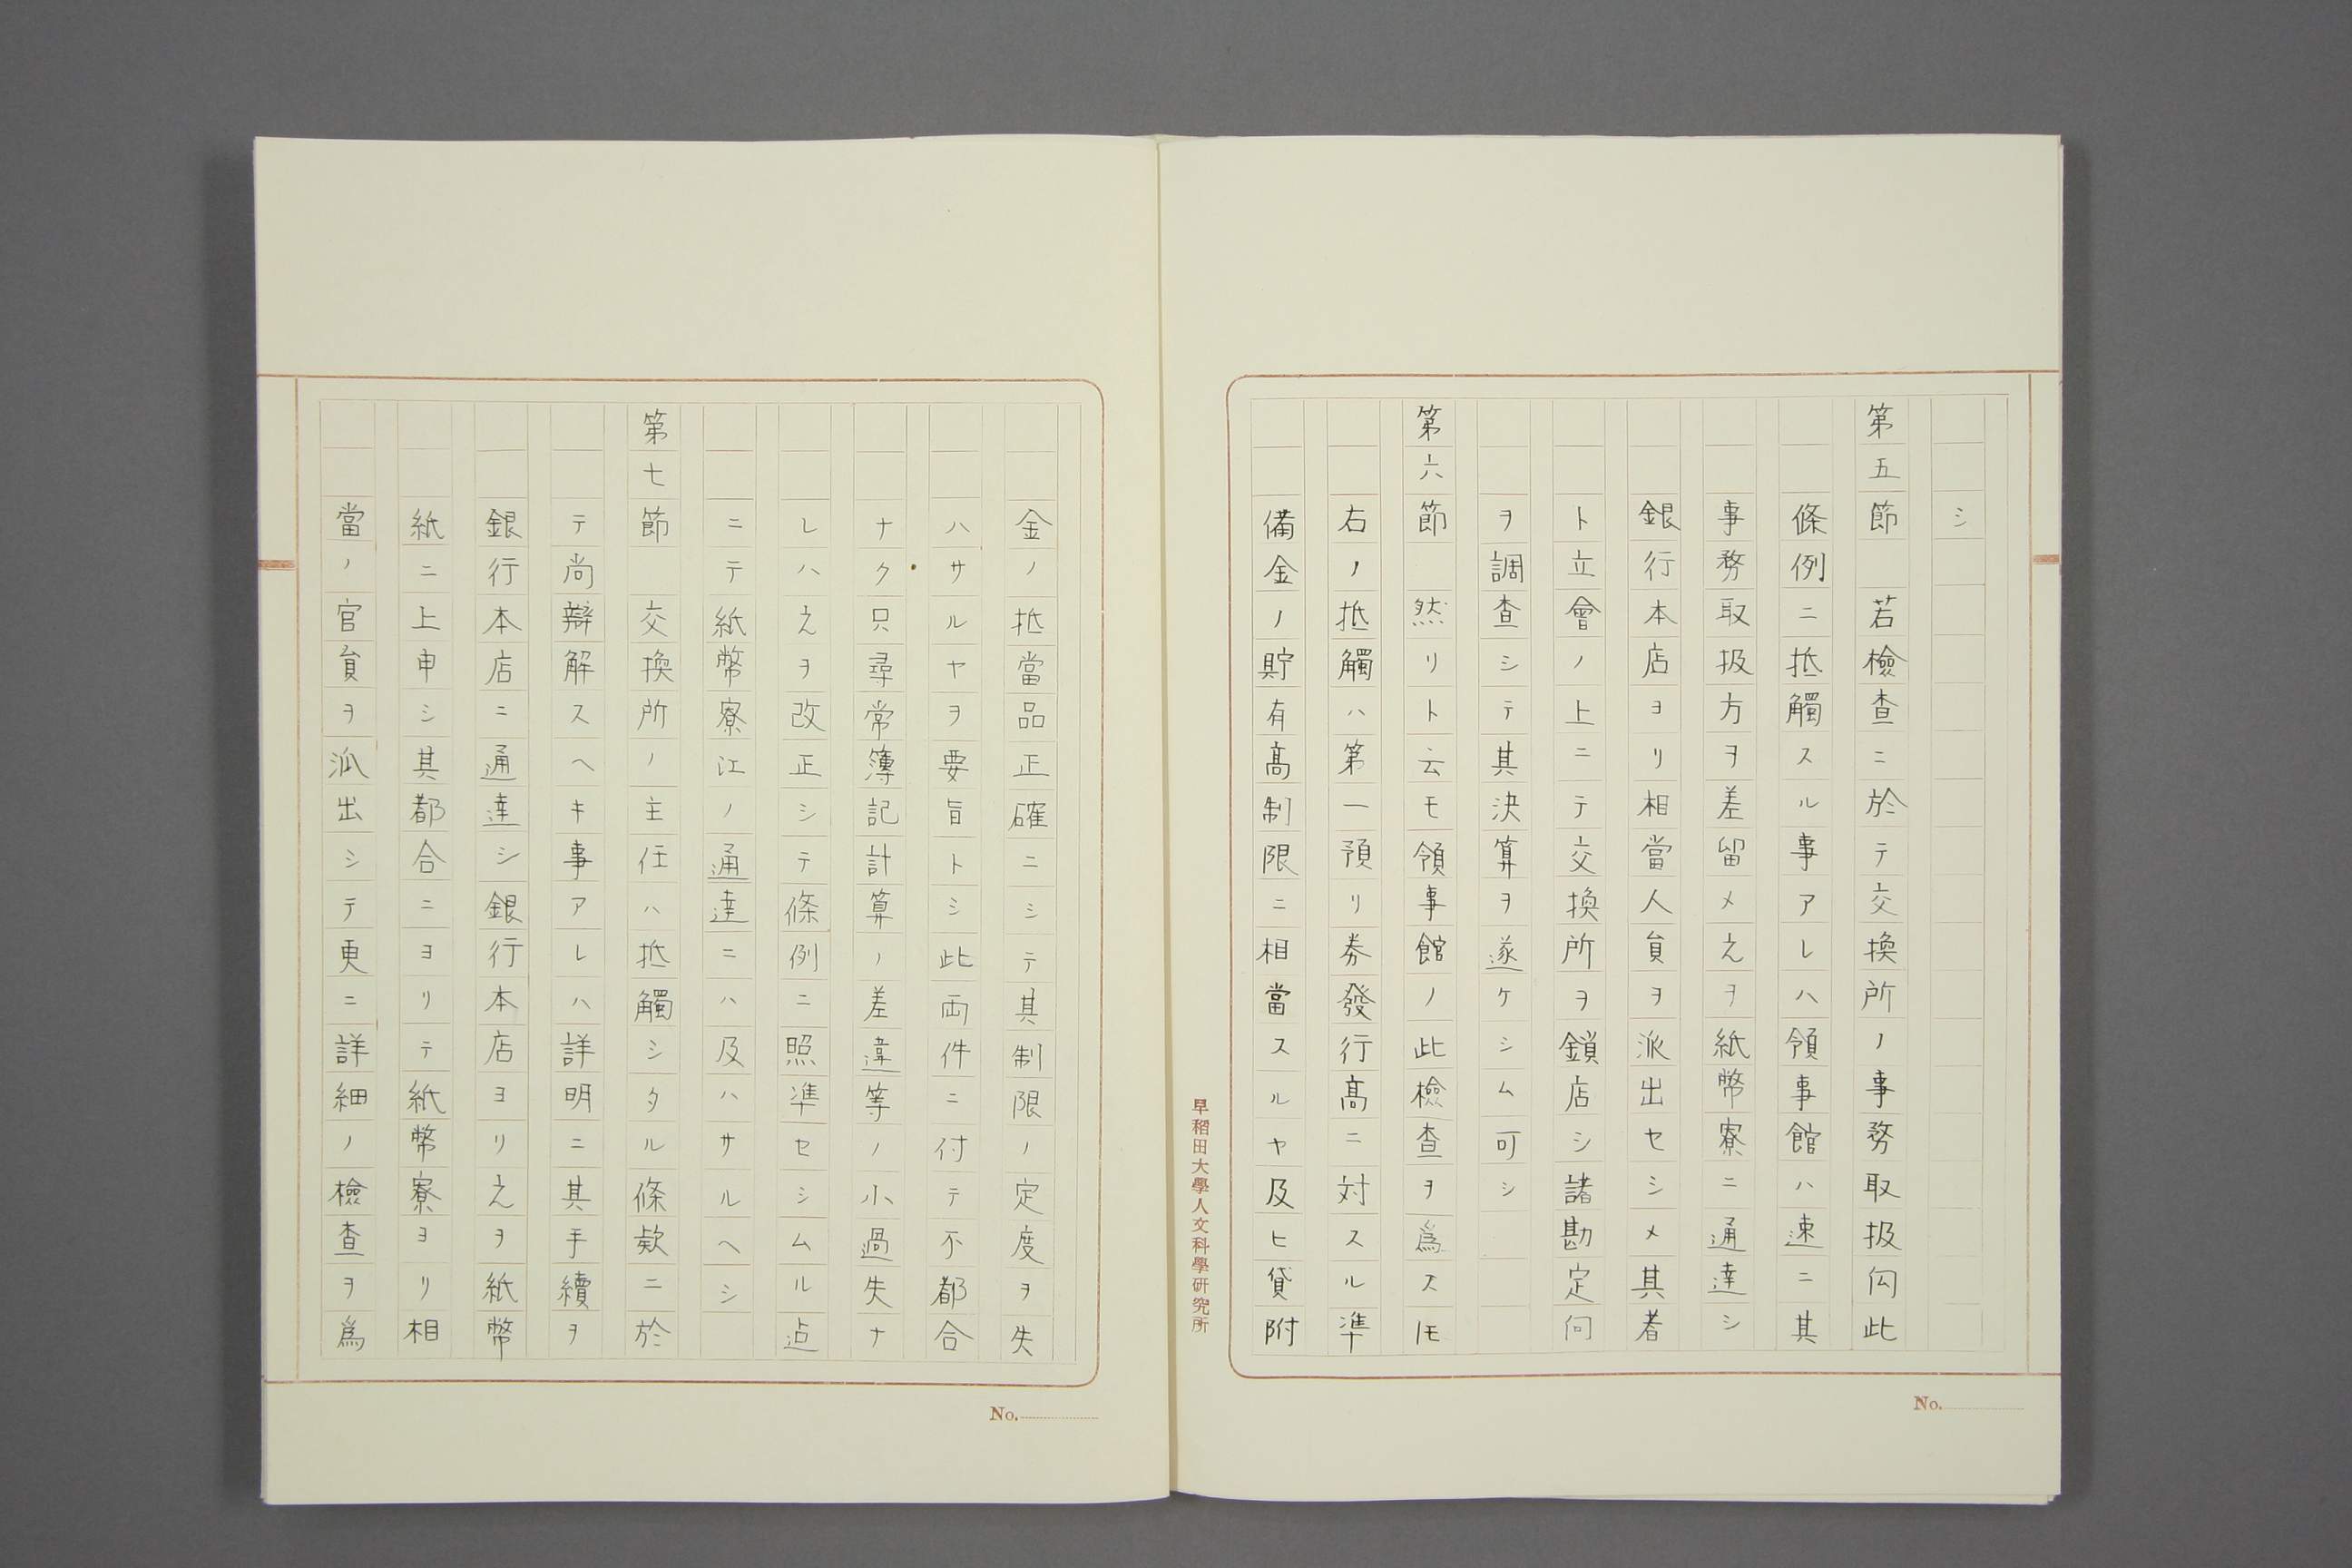 シ
第五節　若檢査ニ於テ交換所ノ事務取扱向此
條例ニ抵觸スル事アレハ領事館ハ速ニ其
事務取扱方ヲ差留メ之ヲ紙幣寮ニ通達シ
銀行本店ヨリ相當人員ヲ派出セシメ其者
ト立會ノ上ニテ交換所ヲ鎖店シ諸勘定向
ヲ調査シテ其決算ヲ遂ケシム可シ
第六節　然リト云モ領事館ノ此檢査ヲ為スヿモ
右ノ抵觸ハ第一預リ券發行髙ニ対スル準
備金ノ貯有髙制限ニ相當スルヤ及ヒ貸附
早稻田大學人文科學研究所
No.
金ノ抵當品正確ニシテ其制限ノ定度ヲ失
ハサルヤヲ要旨トシ此両件ニ付テ不都合
ナク只尋常簿記計算ノ差違等ノ小過失ナ
レハ之ヲ改正シテ條例ニ照準セシムル迠
ニテ紙幣寮江ノ通達ニハ及ハサルヘシ
第七節　交換所ノ主任ハ抵觸シタル條欵ニ於
テ尚辯解スヘキ事アレハ詳明ニ其手續ヲ
銀行本店ニ通達シ銀行本店ヨリ之ヲ紙幣
紙ニ上申シ其都合ニヨリテ紙幣寮ヨリ相
當ノ官員ヲ派出シテ更ニ詳細ノ檢査ヲ為
No.